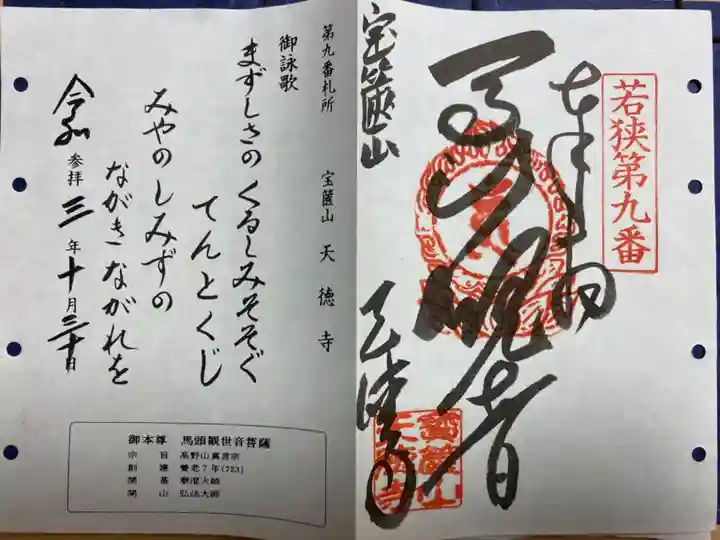 若狭第九番
奉拝
馬頭観音
宝篋山
天徳寺
第九番札所 宝篋山 天徳寺
御詠歌
まずしさの くるしみそそぐ
てんとくじ
みやのしみずの
ながきながれを
令和 参拝 三年十月三十日
御本尊 馬頭観世音菩薩
宗旨 高野山真言宗
創建 養老7年(723)
開基 泰澄大師
開山 弘法大師